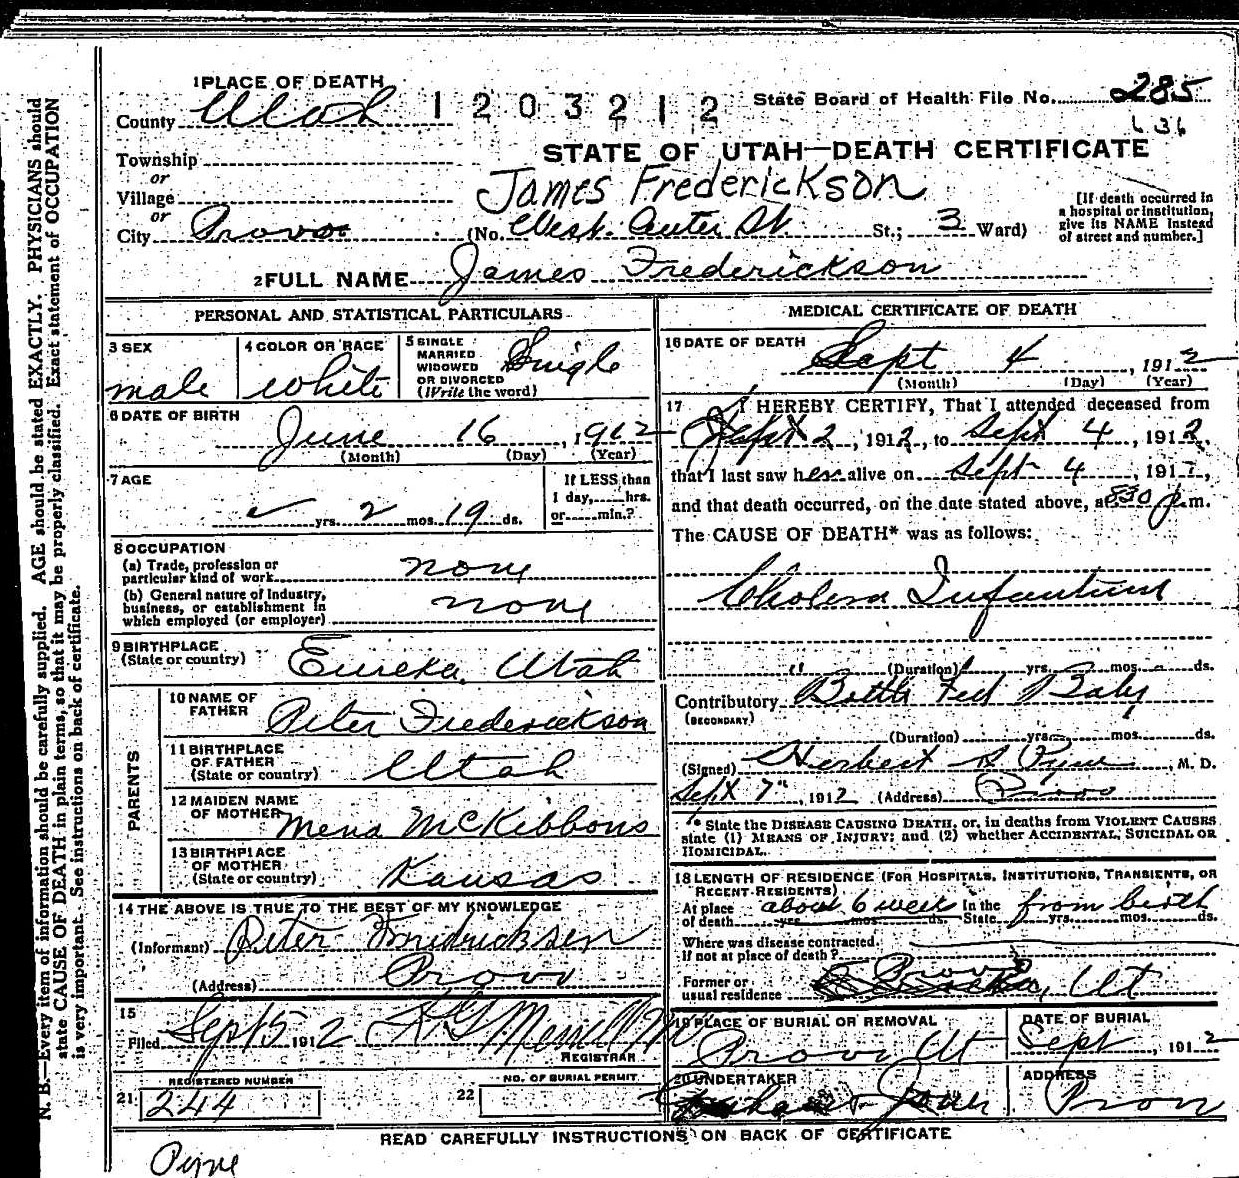 1 PLACE OF DEATH
County Utah
1203212
State Board of Health File No. 285
136
STATE OF UTAH—DEATH CERTIFICATE
Township
or
Village
or
City Provo
James Frederickson
(No. West Center St. St.; 3 Ward)
[If death occurred in
a hospital or institution,
give its NAME instead
of street and number.]
2 FULL NAME James Frederickson
PERSONAL AND STATISTICAL PARTICULARS
3 SEX
male
4 COLOR OR RACE
white
5 SINGLE
MARRIED
WIDOWED
OR DIVORCED
(Write the word)
Single
6 DATE OF BIRTH
June 16, 1912
(Month) (Day) (Year)
7 AGE
yrs. 2 mos. 19 ds.
If LESS than
1 day, hrs.
or min.?
8 OCCUPATION
(a) Trade, profession or
particular kind of work none
(b) General nature of industry,
business, or establishment in
which employed (or employer) none
9 BIRTHPLACE
(State or country) Eureka, Utah
PARENTS
10 NAME OF
FATHER Peter Frederickson
11 BIRTHPLACE
OF FATHER
(State or country) Utah
12 MAIDEN NAME
OF MOTHER Mena McKibbons
13 BIRTHPLACE
OF MOTHER
(State or country) Kansas
14 THE ABOVE IS TRUE TO THE BEST OF MY KNOWLEDGE
(Informant) Peter
(Address) Provo
15
Filed Sept 5 1912
REGISTRAR
REGISTERED NUMBER
21 244
NO. OF BURIAL PERMIT
22
MEDICAL CERTIFICATE OF DEATH
16 DATE OF DEATH
Sept 4, 1912
(Month) (Day) (Year)
17 I HEREBY CERTIFY, That I attended deceased from
Sept 2, 1912, to Sept 4, 1912,
that I last saw h alive on Sept 4, 191,
and that death occurred, on the date stated above, at 830 p.m.
The CAUSE OF DEATH* was as follows:
Cholera Infantum
(Duration) yrs. mos. ds.
Contributory Bottle Fed Baby
(SECONDARY)
(Duration) yrs. mos. ds.
(Signed) Herbert S Pyne, M. D.
Sept 7", 1912 (Address) Provo
* State the DISEASE CAUSING DEATH, or, in deaths from VIOLENT CAUSES
state (1) MEANS OF INJURY; and (2) whether ACCIDENTAL, SUICIDAL OR
HOMICIDAL.
18 LENGTH OF RESIDENCE (FOR HOSPITALS, INSTITUTIONS, TRANSIENTS, OR
RECENT RESIDENTS)
At place about 6 week In the from birth
of death yrs. mos. ds. State yrs. mos. ds.
Where was disease contracted
If not at place of death?
Former or
usual residence Provo, Ut
19 PLACE OF BURIAL OR REMOVAL
Provo Ut
DATE OF BURIAL
Sept, 1912
20 UNDERTAKER
ADDRESS
Provo
READ CAREFULLY INSTRUCTIONS ON BACK OF CERTIFICATE
Pyne
N. B.—Every item of information should be carefully supplied. AGE should be stated EXACTLY. PHYSICIANS should
state CAUSE OF DEATH in plain terms, so that it may be properly classified. Exact statement of OCCUPATION
is very important. See instructions on back of certificate.